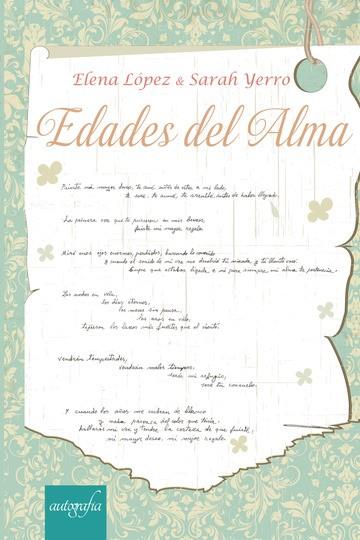 Elena López & Sarah Yerro
Edades del Alma
Fuiste mi mayor deseo, te amé antes de verte a mi lado,
te soñé, te sentí, te antes de haber llegado.
La primera vez que te pusieron en mis brazos,
fuiste mi mayor regalo.
Miré esos ojos enormes, perdidos, buscando lo conocido
y cuando el sonido de mi voz me devolvió tu mirada, y tu llanto cesó.
Supe que estabas ligada a mi para siempre, mi alma te pertenecía.
Las noches en vela,
los días eternos,
los meses sin pausa,
los años en vilo,
tejieron los lazos más fuertes que el viento.
Vendrán tempestades,
vendrán malos tiempos,
serás mi refugio,
seré tu consuelo.
Y cuando los años me cubran de blanco
y nada parezca del color que tenía,
hallaras mi voz y tendré la certeza de que fuiste,
mi mayor deseo, mi mejor regalo.
autografía